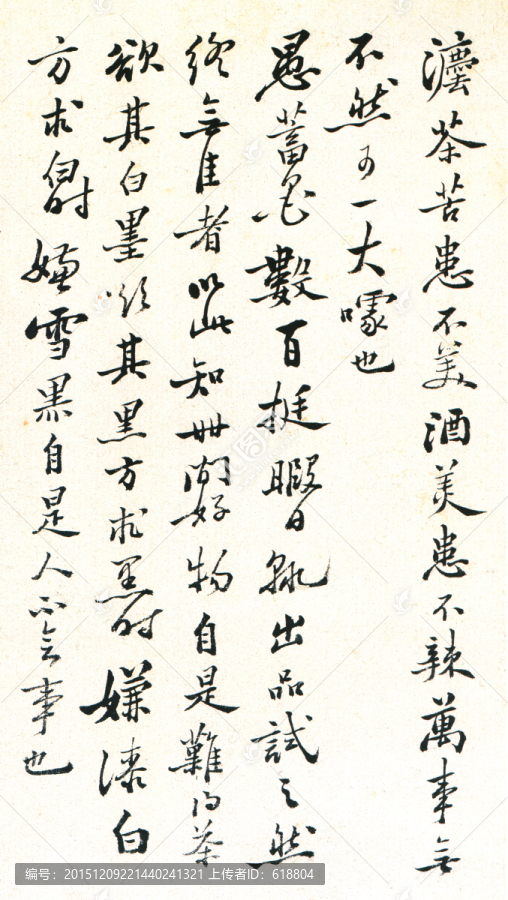 茶苦患不美酒美患不辣萬事無
不然可一大噱也
愚蓄墨數百挺暇日輒出品試之然
終無佳者以此知世間好物自是難得茶
欲其白墨欲其黑方求黑時嫌漆白
方求白時嫌雪黑自是人不會事也
编号：20151209221440241321 上传者ID：618804